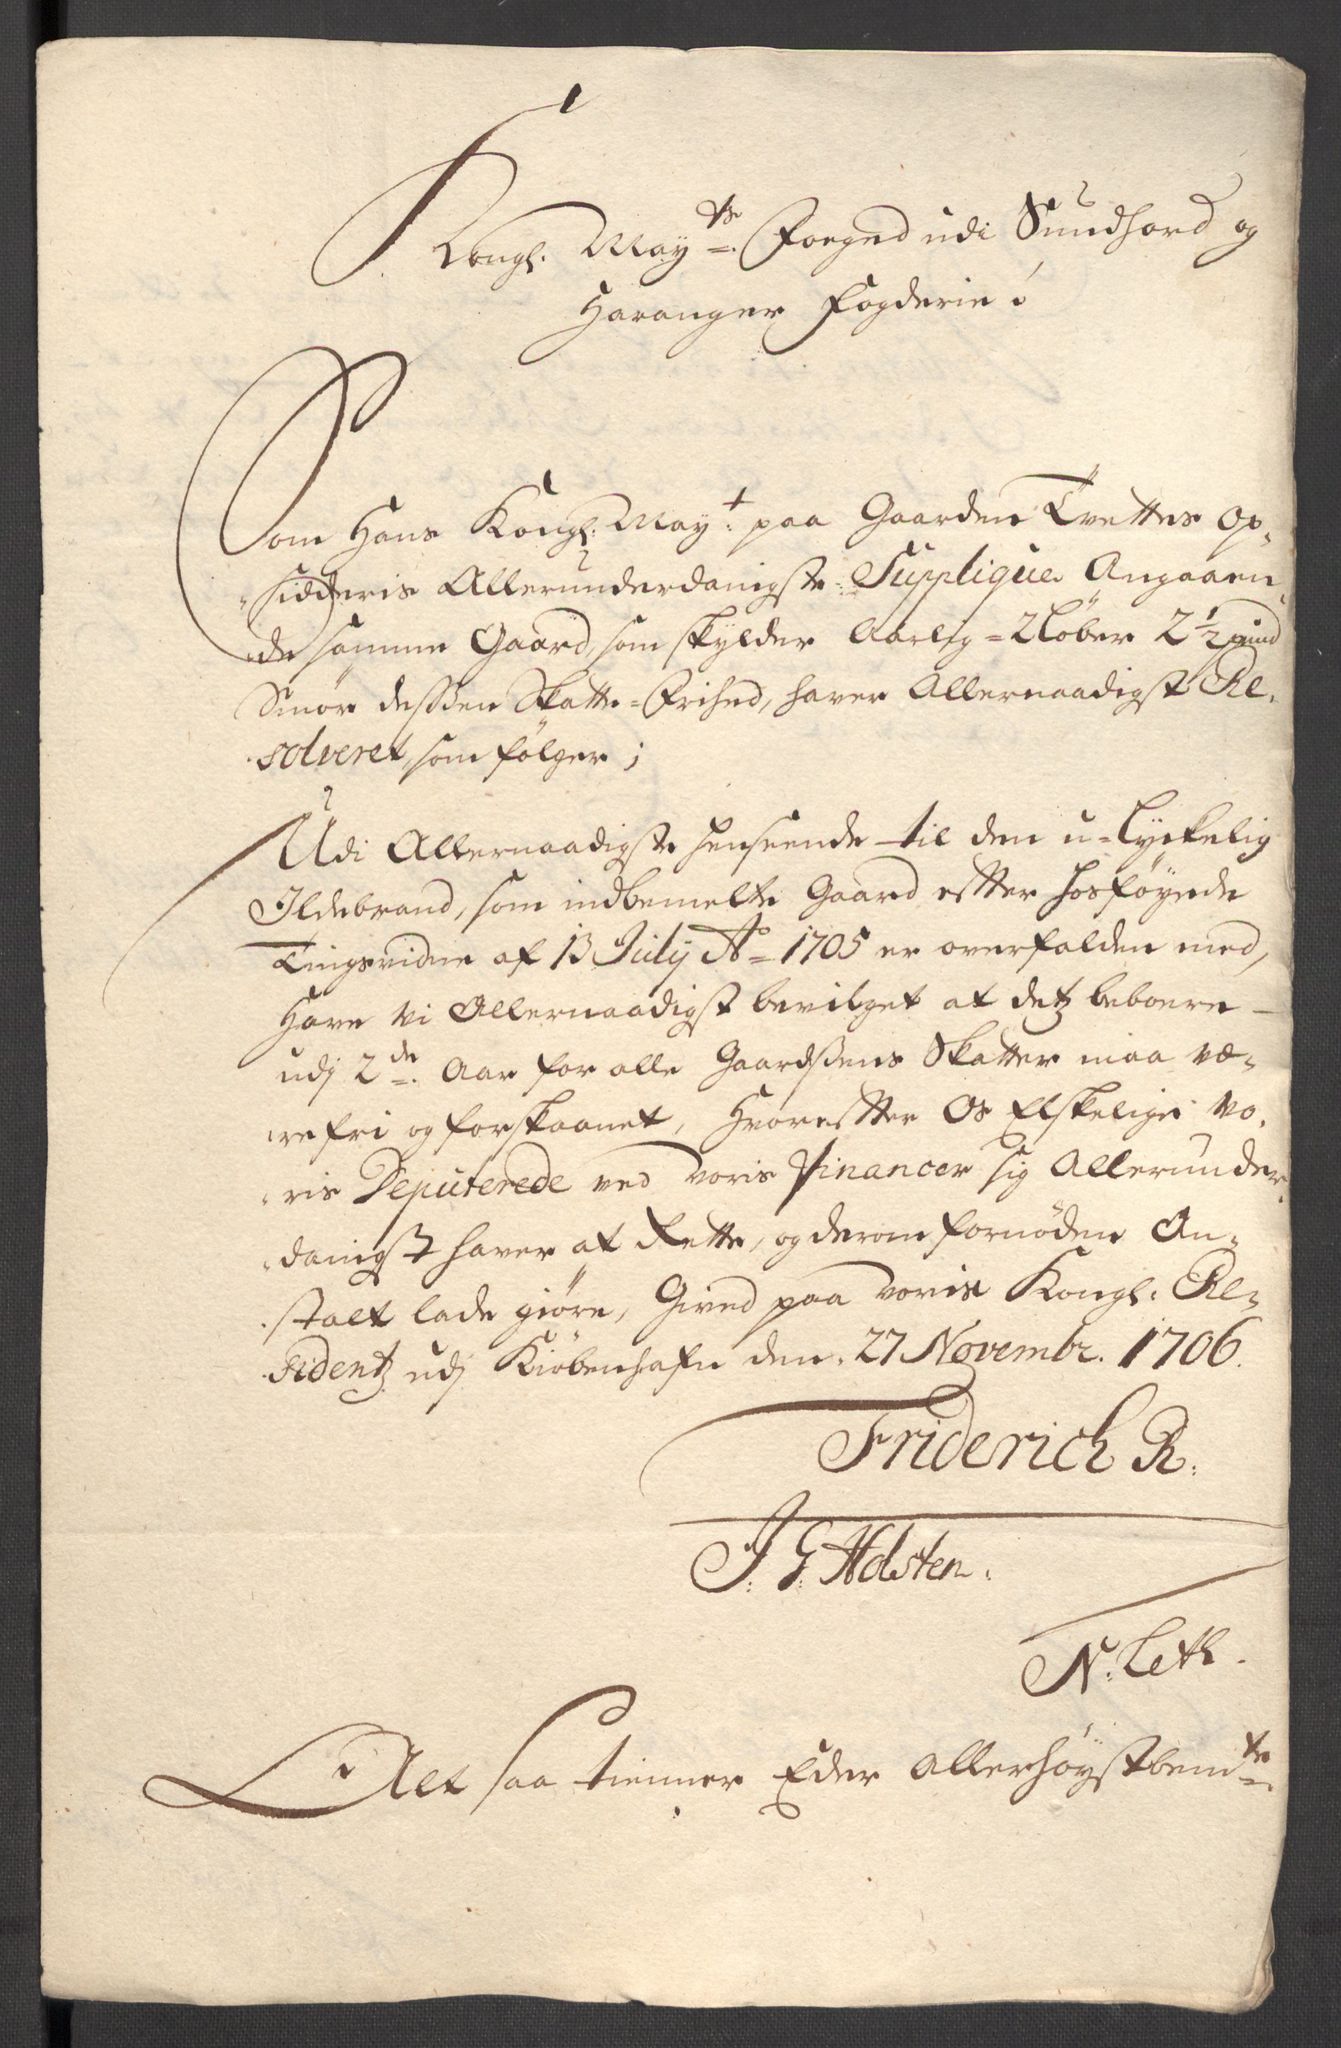 Kongl. May.ts Foeged udi Sundhord og
Haranger Fogderie
Som Hans Kongl. May.t paa Gaarden Tvettes Op-
sidderis Allerunderdanigste Supplique Angaaen-
de samme Gaard, som skylder Aarlig 2 Løber 2½ pund
Smør dessen Skatte-Frihed, haver Allernaadigst Re-
solveret, som følger;
Udi Allernaadigste henseende til den u-lyckelig
Ildebrand, som indbemelte Gaard efter hosføyede
Tingsvidne af 13 July Ao 1705 er overfalden med,
Have vi Allernaadigst bevilget at detz beboere
udj 2de Aar for alle Gaardsens Skatter maa væ-
re fri og forskaanet, Hvorefter Os Elskelige Vo-
ris Deputerede ved voris Financer sig Allerunder-
danigst haver at Rette, og derom fornøden An-
stalt lade giøre, Gived paa voris Kongl. Re-
sidentz udj Kiøbenhafn den 27 Novembr. 1706.
Friderich R.
J. G. Holsten.
N. Leth.
Alt saa tienner Eder Allerhøystbem.te